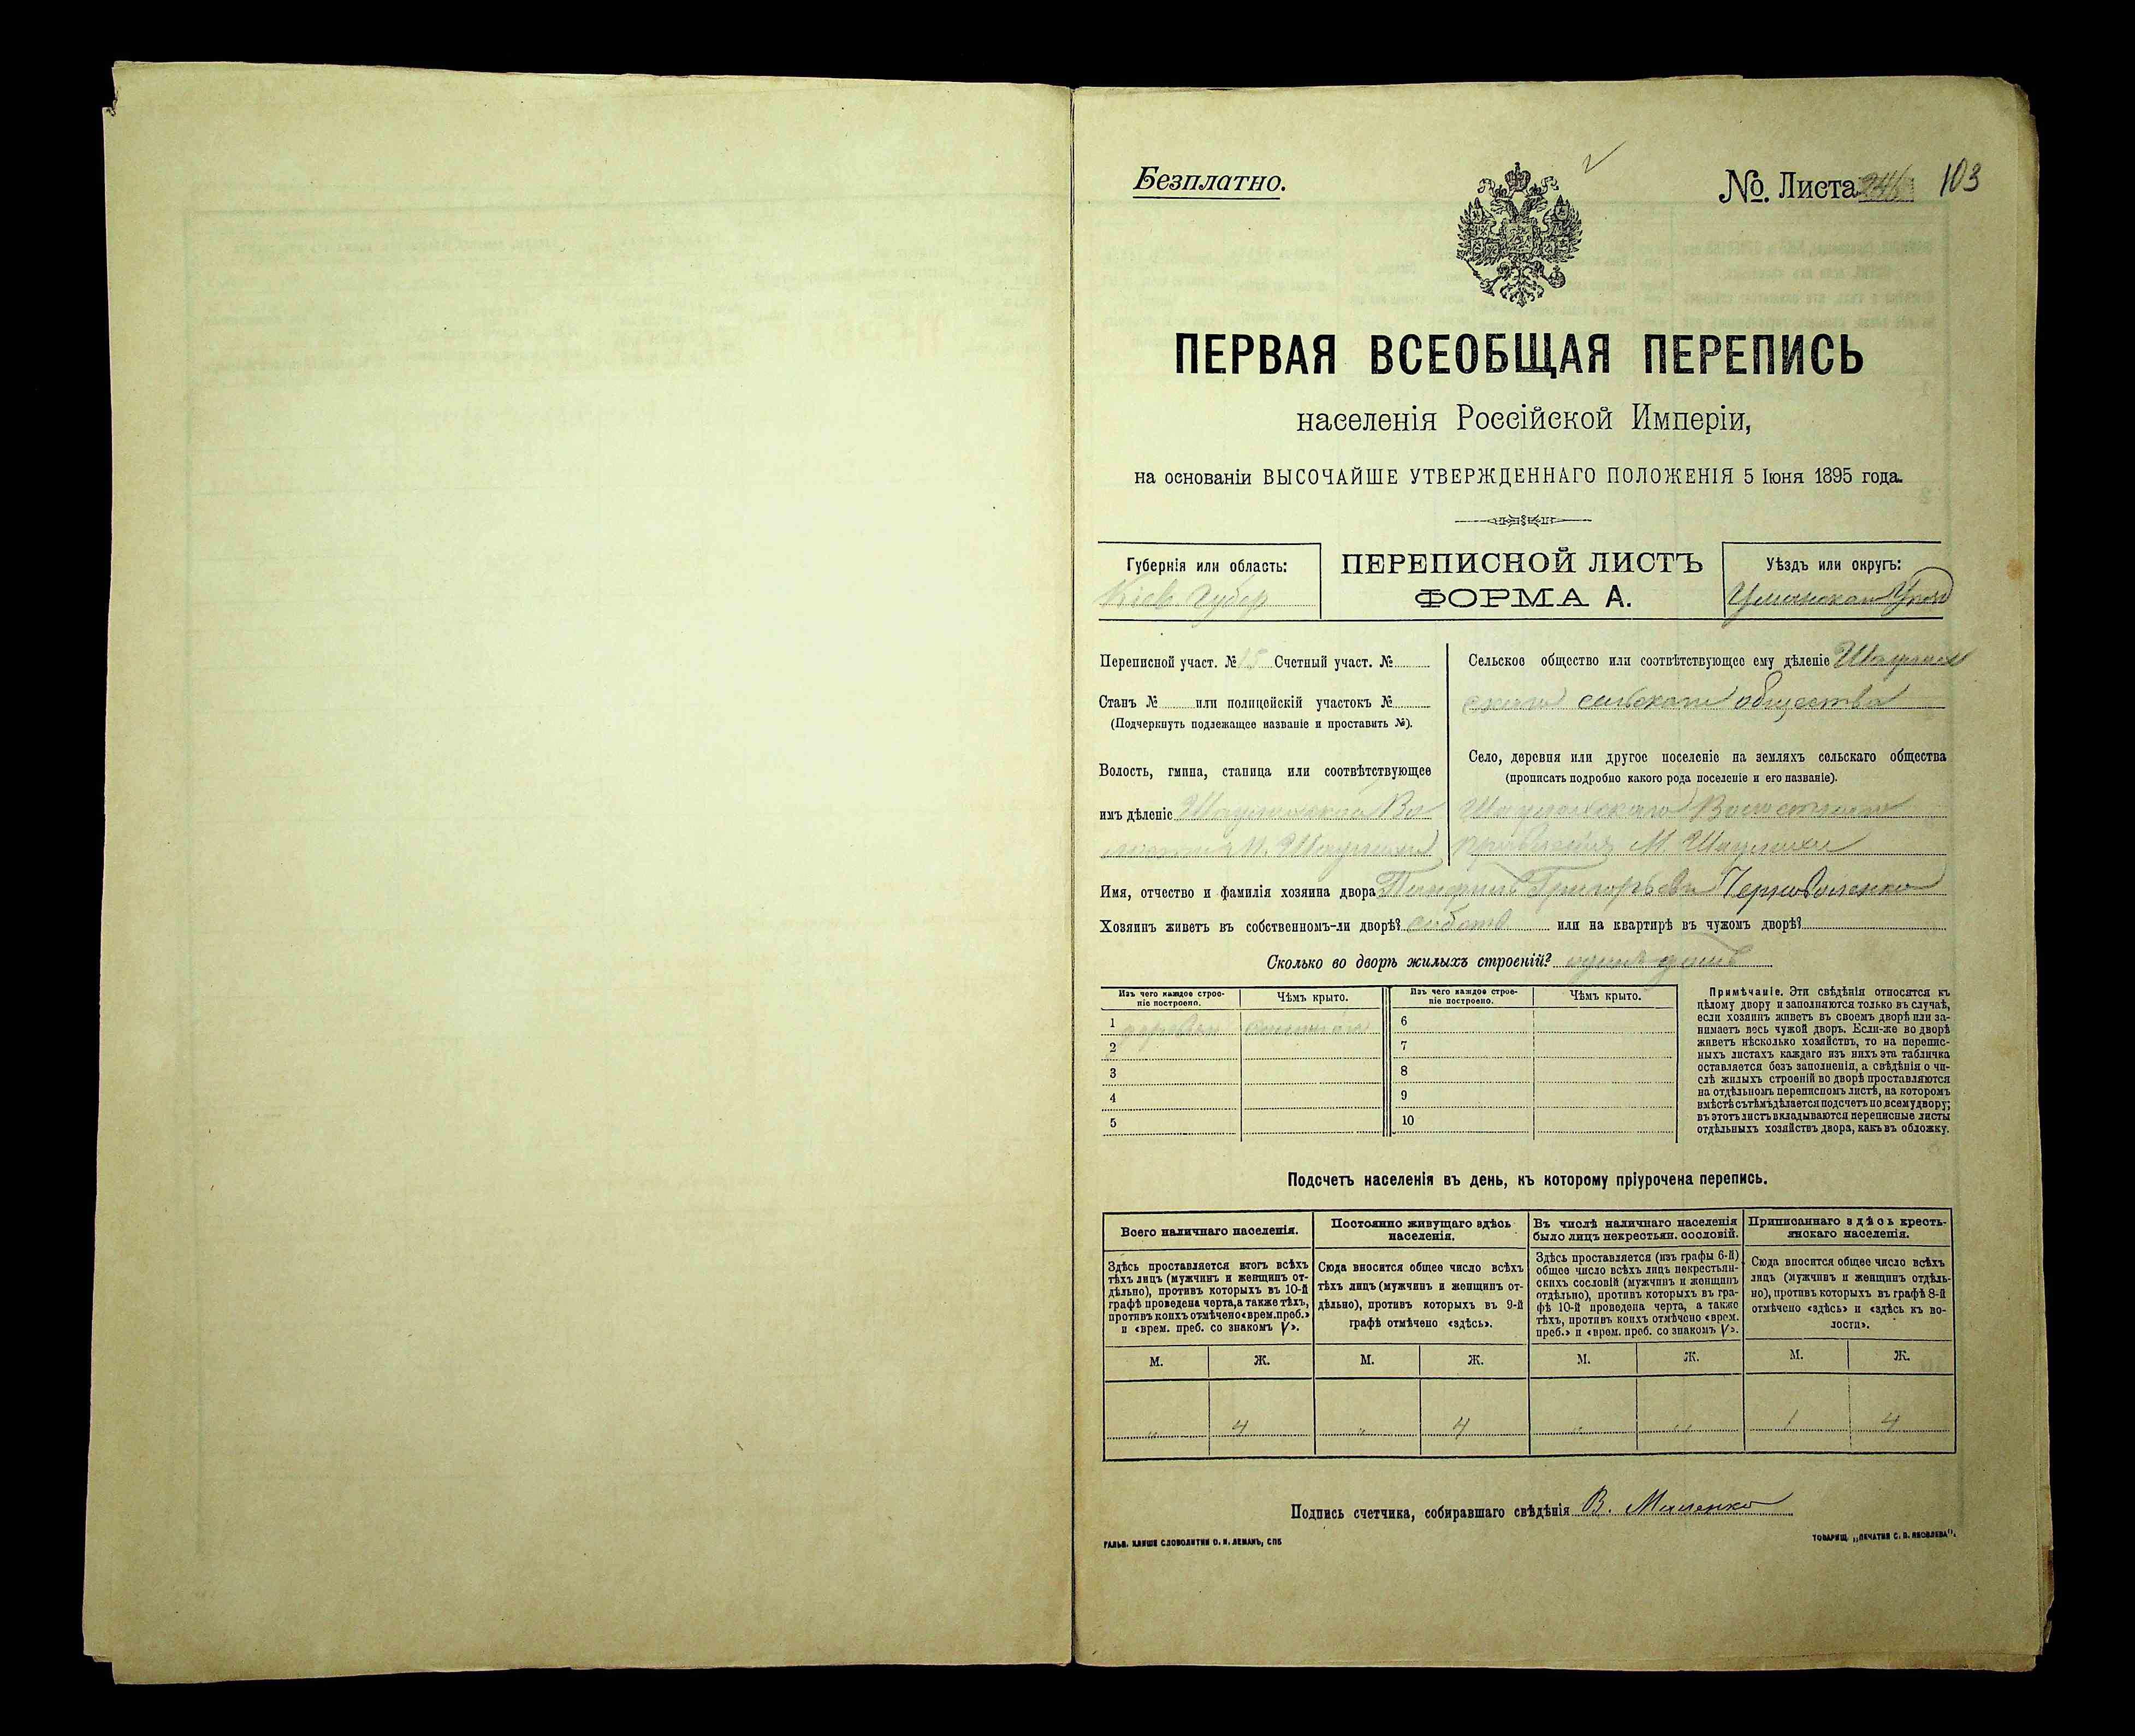 Безплатно.
№. Листа 103
ПЕРВАЯ ВСЕОБЩАЯ ПЕРЕПИСЬ
населенія Россійской Имперіи,
на основаніи ВЫСОЧАЙШЕ УТВЕРЖДЕННАГО ПОЛОЖЕНІЯ 5 Іюня 1895 года.
Губернія или область:
Кіев Губер
ПЕРЕПИСНОЙ ЛИСТЪ
ФОРМА А.
Уѣздъ или округъ:
Переписной участ. № 15 Счетный участ. №
Станъ № или полицейскій участокъ №
(Подчеркнуть подлежащее названіе и проставить №).
Волость, гмина, станица или соотвѣтствующее
имъ дѣленіе
Сельское общество или соотвѣтствующее ему дѣленіе
сельскаго общества
Село, деревня или другое поселеніе на земляхъ сельскаго общества
(прописать подробно какого рода поселеніе и его названіе).
Имя, отчество и фамилія хозяина двора
Хозяинъ живетъ въ собственномъ-ли дворѣ? или на квартирѣ въ чужомъ дворѣ?
Сколько во дворѣ жилыхъ строеній? одинъ домъ
Изъ чего каждое строе-
ніе построено.
Чѣмъ крыто.
Изъ чего каждое строе-
ніе построено.
Чѣмъ крыто.
1 6
2 7
3 8
4 9
5 10
Примѣчаніе. Эти свѣдѣнія относятся къ
цѣлому двору и заполняются только въ случаѣ,
если хозяинъ живетъ въ своемъ дворѣ или за-
нимаетъ весь чужой дворъ. Если-же во дворѣ
живетъ нѣсколько хозяйствъ, то на перепис-
ныхъ листахъ каждаго изъ нихъ эта табличка
оставляется безъ заполненія, а свѣдѣнія о чи-
слѣ жилыхъ строеній во дворѣ проставляются
на отдѣльномъ переписномъ листѣ, на которомъ
вмѣстѣ съ тѣмъ дѣлается подсчетъ по всему двору;
въ этотъ листъ вкладываются переписные листы
отдѣльныхъ хозяйствъ двора, какъ въ обложку.
Подсчетъ населенія въ день, къ которому пріурочена перепись.
Всего наличнаго населенія.
Здѣсь проставляется итогъ всѣхъ
тѣхъ лицъ (мужчинъ и женщинъ от-
дѣльно), противъ которыхъ въ 10-й
графѣ проведена черта, а также тѣхъ,
противъ коихъ отмѣчено «врем. преб.»
и «врем. преб. со знакомъ V».
Постоянно живущаго здѣсь
населенія.
Сюда вносится общее число всѣхъ
тѣхъ лицъ (мужчинъ и женщинъ от-
дѣльно), противъ которыхъ въ 9-й
графѣ отмѣчено «здѣсь».
Въ числѣ наличнаго населенія
было лицъ некрестьян. сословій.
Здѣсь проставляется (изъ графы 6-й)
общее число всѣхъ лицъ некрестьян-
скихъ сословій (мужчинъ и женщинъ
отдѣльно), противъ которыхъ въ гра-
фѣ 10-й проведена черта, а также
тѣхъ, противъ коихъ отмѣчено «врем.
преб.» и «врем. преб. со знакомъ V».
Приписаннаго здѣсь кресть-
янскаго населенія.
Сюда вносится общее число всѣхъ
лицъ (мужчинъ и женщинъ отдѣль-
но), противъ которыхъ въ графѣ 8-й
отмѣчено «здѣсь» и «здѣсь къ во-
лости».
М. Ж. М. Ж. М. Ж. М. Ж.
" 4 " 4 " " 1 4
Подпись счетчика, собиравшаго свѣдѣнія
ГАЛЬВ. КЛИШЕ СЛОВОЛИТНИ О. И. ЛЕМАНЪ, СПБ
ТОВАРИЩ. „ПЕЧАТНЯ С. П. ЯКОВЛЕВА".